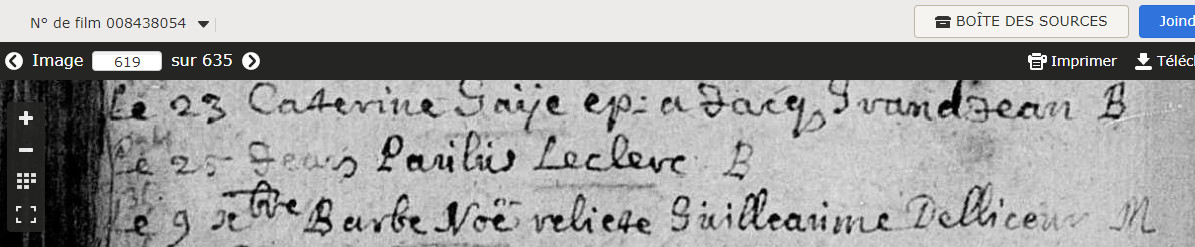 N° de film 008438054
BOÎTE DES SOURCES
Joind
Image 619 sur 635
Imprimer
Téléc
Le 23 Caterine Gaije ep: a Jacq Grandjean B
Le 25 Jean Paulus Leclerc B
Le 9 xbre Barbe Noë relicte Guilleaume Delliceur M